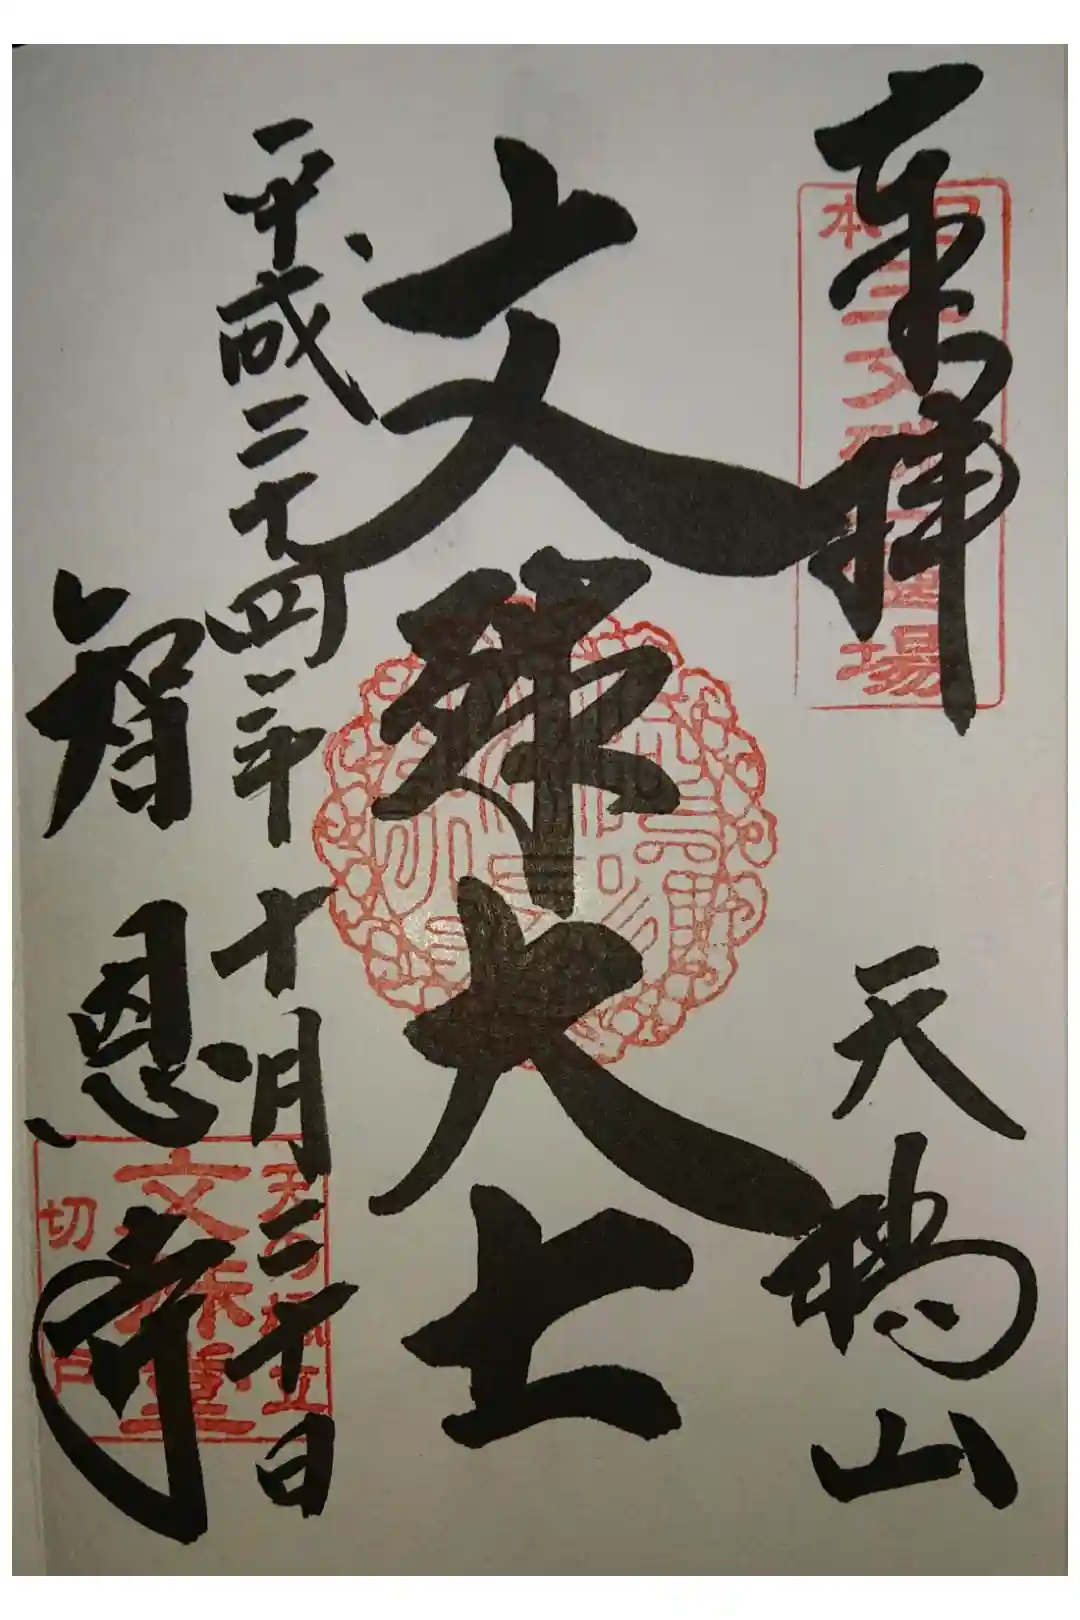 奉拝
日本三文殊霊場
天橋山
文殊大士
平成二十四年十月二十日
智恩寺
天の橋立
文殊堂
切戸